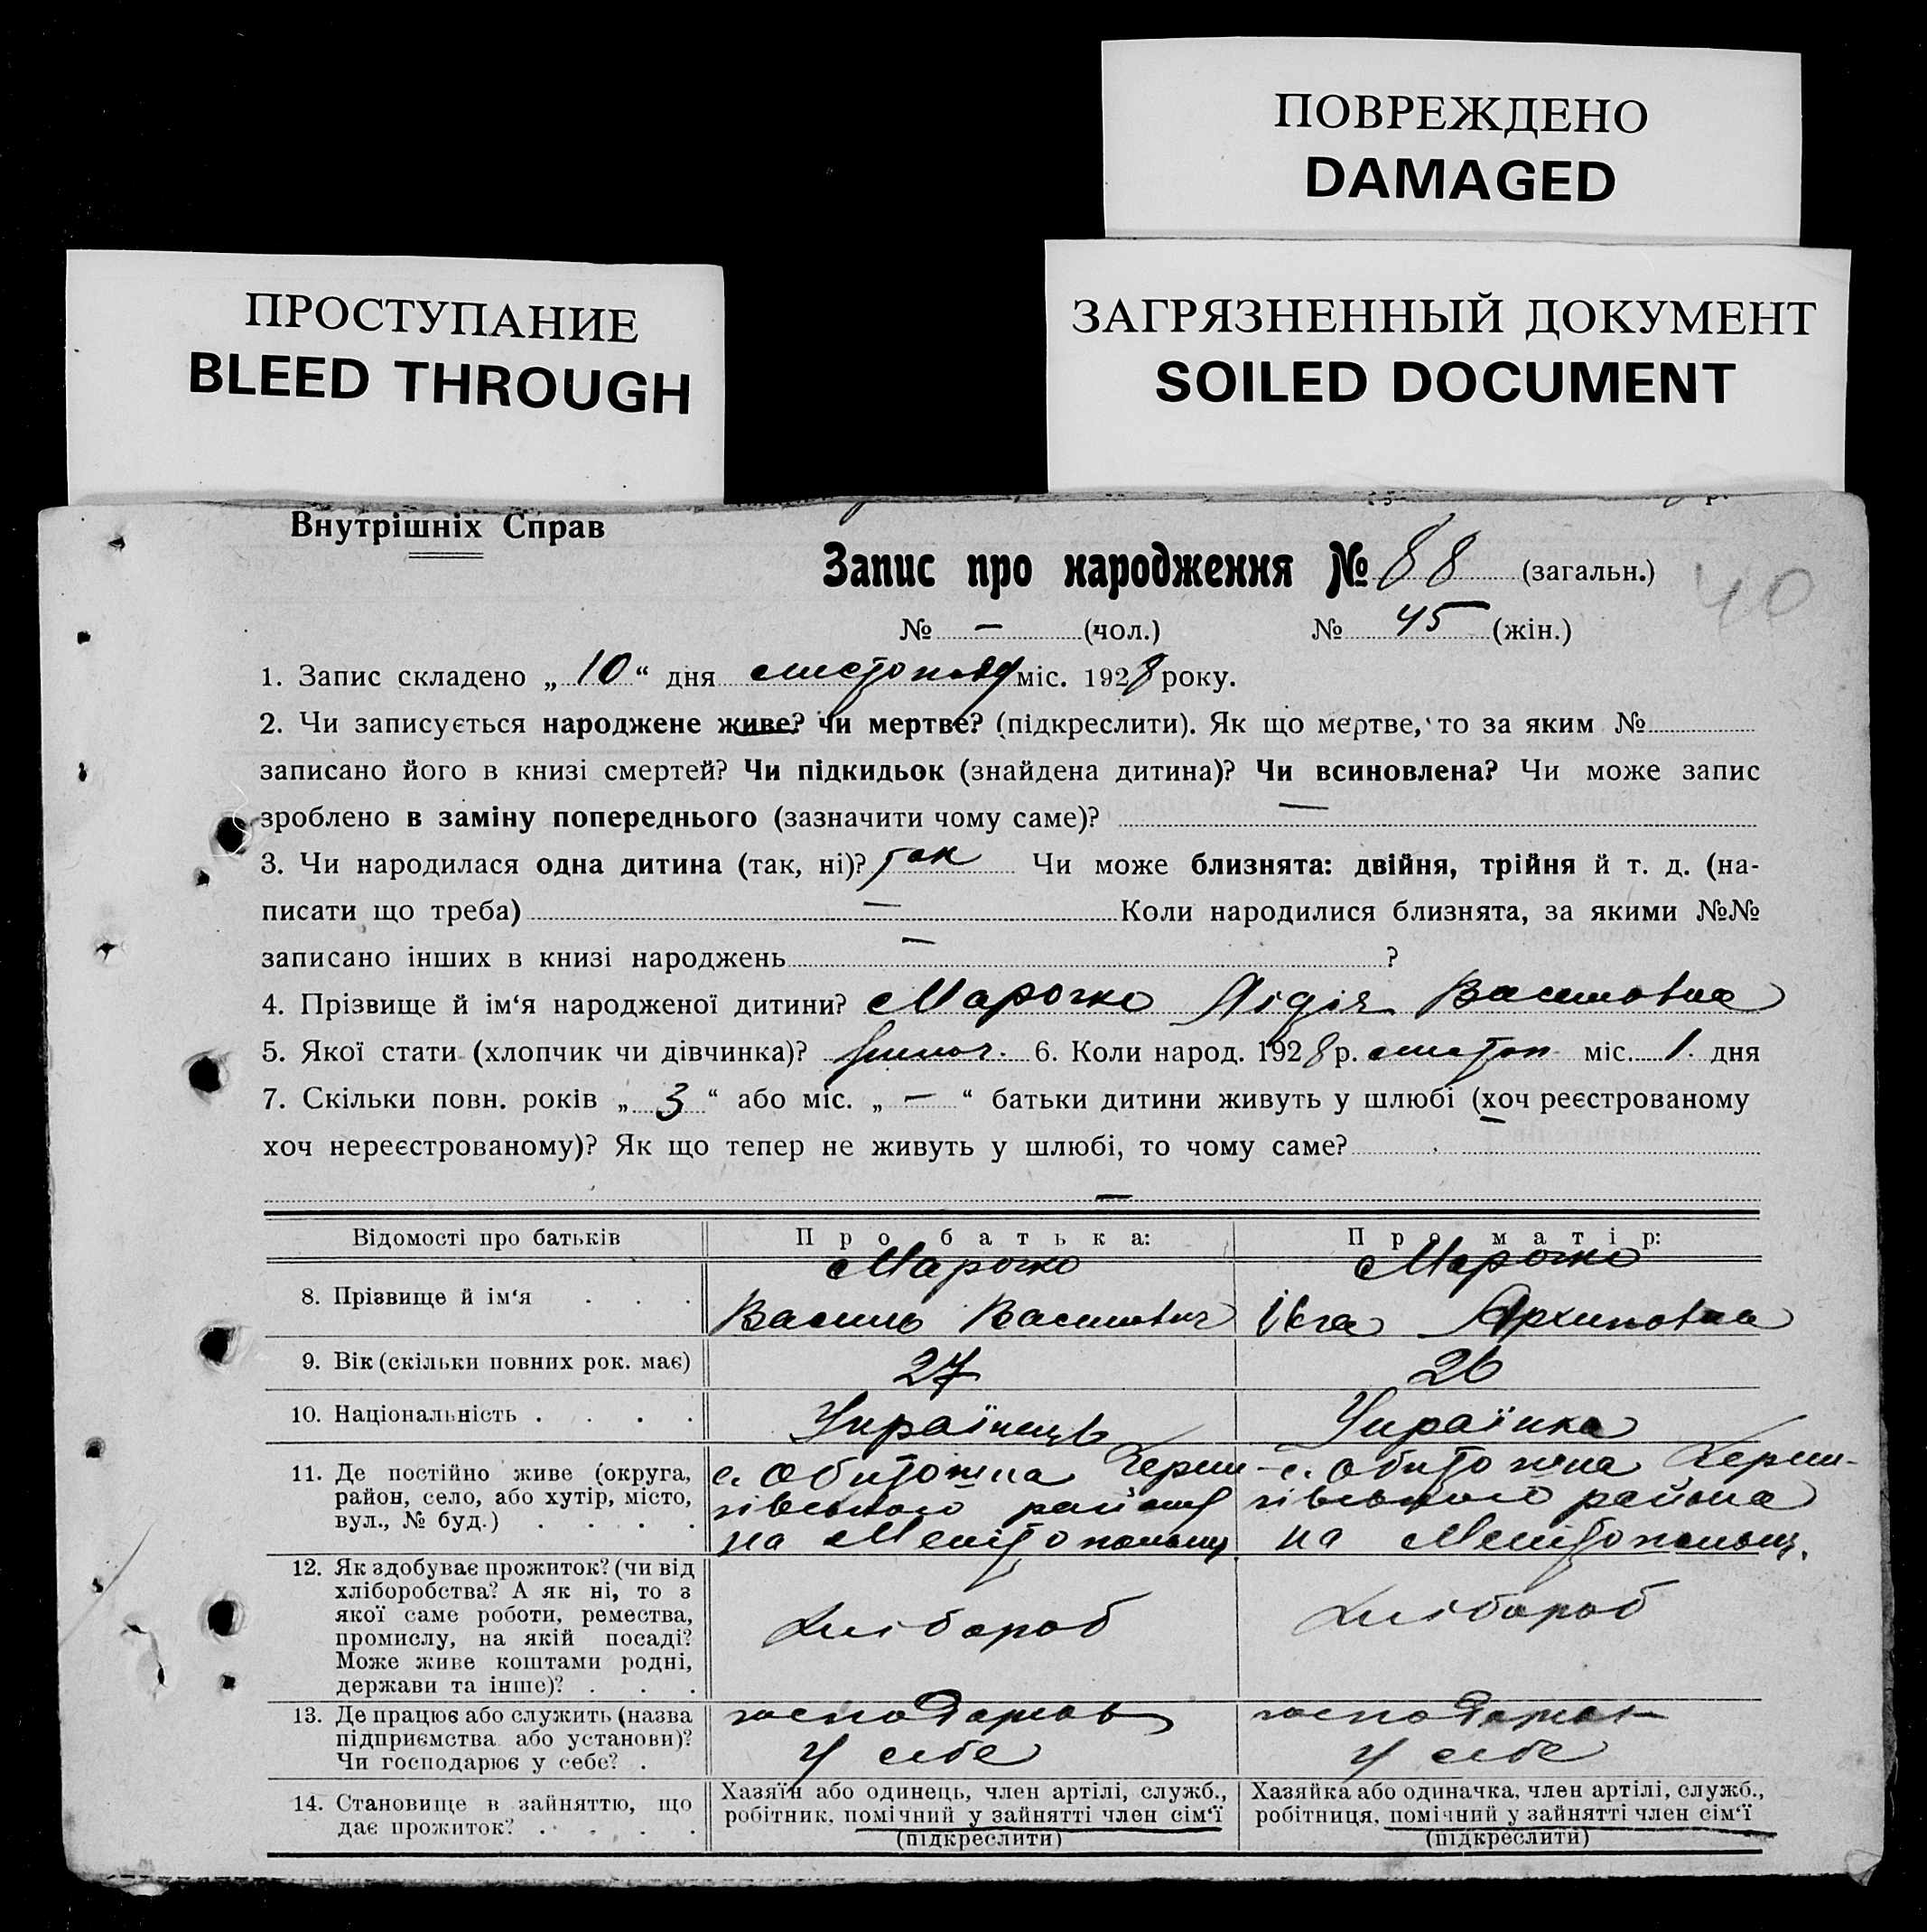 ПОВРЕЖДЕНО
DAMAGED
ПРОСТУПАНИЕ
BLEED THROUGH
ЗАГРЯЗНЕННЫЙ ДОКУМЕНТ
SOILED DOCUMENT
Внутрішніх Справ
Запис про народження № 88 (загальн.)
40
№ — (чол.) № 45 (жін.)
1. Запис складено „ 10 “ дня листопад міс. 1928 року.
2. Чи записується народжене живе? чи мертве? (підкреслити). Як що мертве, то за яким №
записано його в книзі смертей? Чи підкидьок (знайдена дитина)? Чи всиновлена? Чи може запис
зроблено в заміну попереднього (зазначити чому саме)? —
3. Чи народилася одна дитина (так, ні)? так Чи може близнята: двійня, трійня й т. д. (на-
писати що треба) — Коли народилися близнята, за якими №№
записано інших в книзі народжень — ?
4. Прізвище й ім‘я народженої дитини? Марочко Лідія Василовна
5. Якої стати (хлопчик чи дівчинка)? 6. Коли народ. 1928 р. листоп міс. 1. дня
7. Скільки повн. років „ 3 “ або міс. „ — “ батьки дитини живуть у шлюбі (хоч реєстрованому
хоч нереєстрованому)? Як що тепер не живуть у шлюбі, то чому саме?
—
Відомості про батьків Про батька: Про матір:
8. Прізвище й ім‘я . . . Марочко Василь Василович Марочко Івга Архиповна
9. Вік (скільки повних рок. має) 27 26
10. Національність . . . . Українець Українка
11. Де постійно живе (округа,
район, село, або хутір, місто,
вул., № буд.) . . . .
с. Обиточна Черни-
гівського району
на Мелітопольщ
с. Обиточна Черни-
гівського района
на Мелітопольщ.
12. Як здобуває прожиток? (чи від
хліборобства? А як ні, то з
якої саме роботи, ремества,
промислу, на якій посаді?
Може живе коштами родні,
держави та інше)? . . .
Хлібороб
Хлібороб
13. Де працює або служить (назва
підприємства або установи)?
Чи господарює у себе? .
у себе
у себе
14. Становище в зайняттю, що
дає прожиток? . . . .
Хазяїн або одинець, член артілі, служб.,
робітник, помічний у зайнятті член сім‘ї
(підкреслити)
Хазяйка або одиначка, член артілі, служб.,
робітниця, помічний у зайнятті член сім‘ї
(підкреслити)